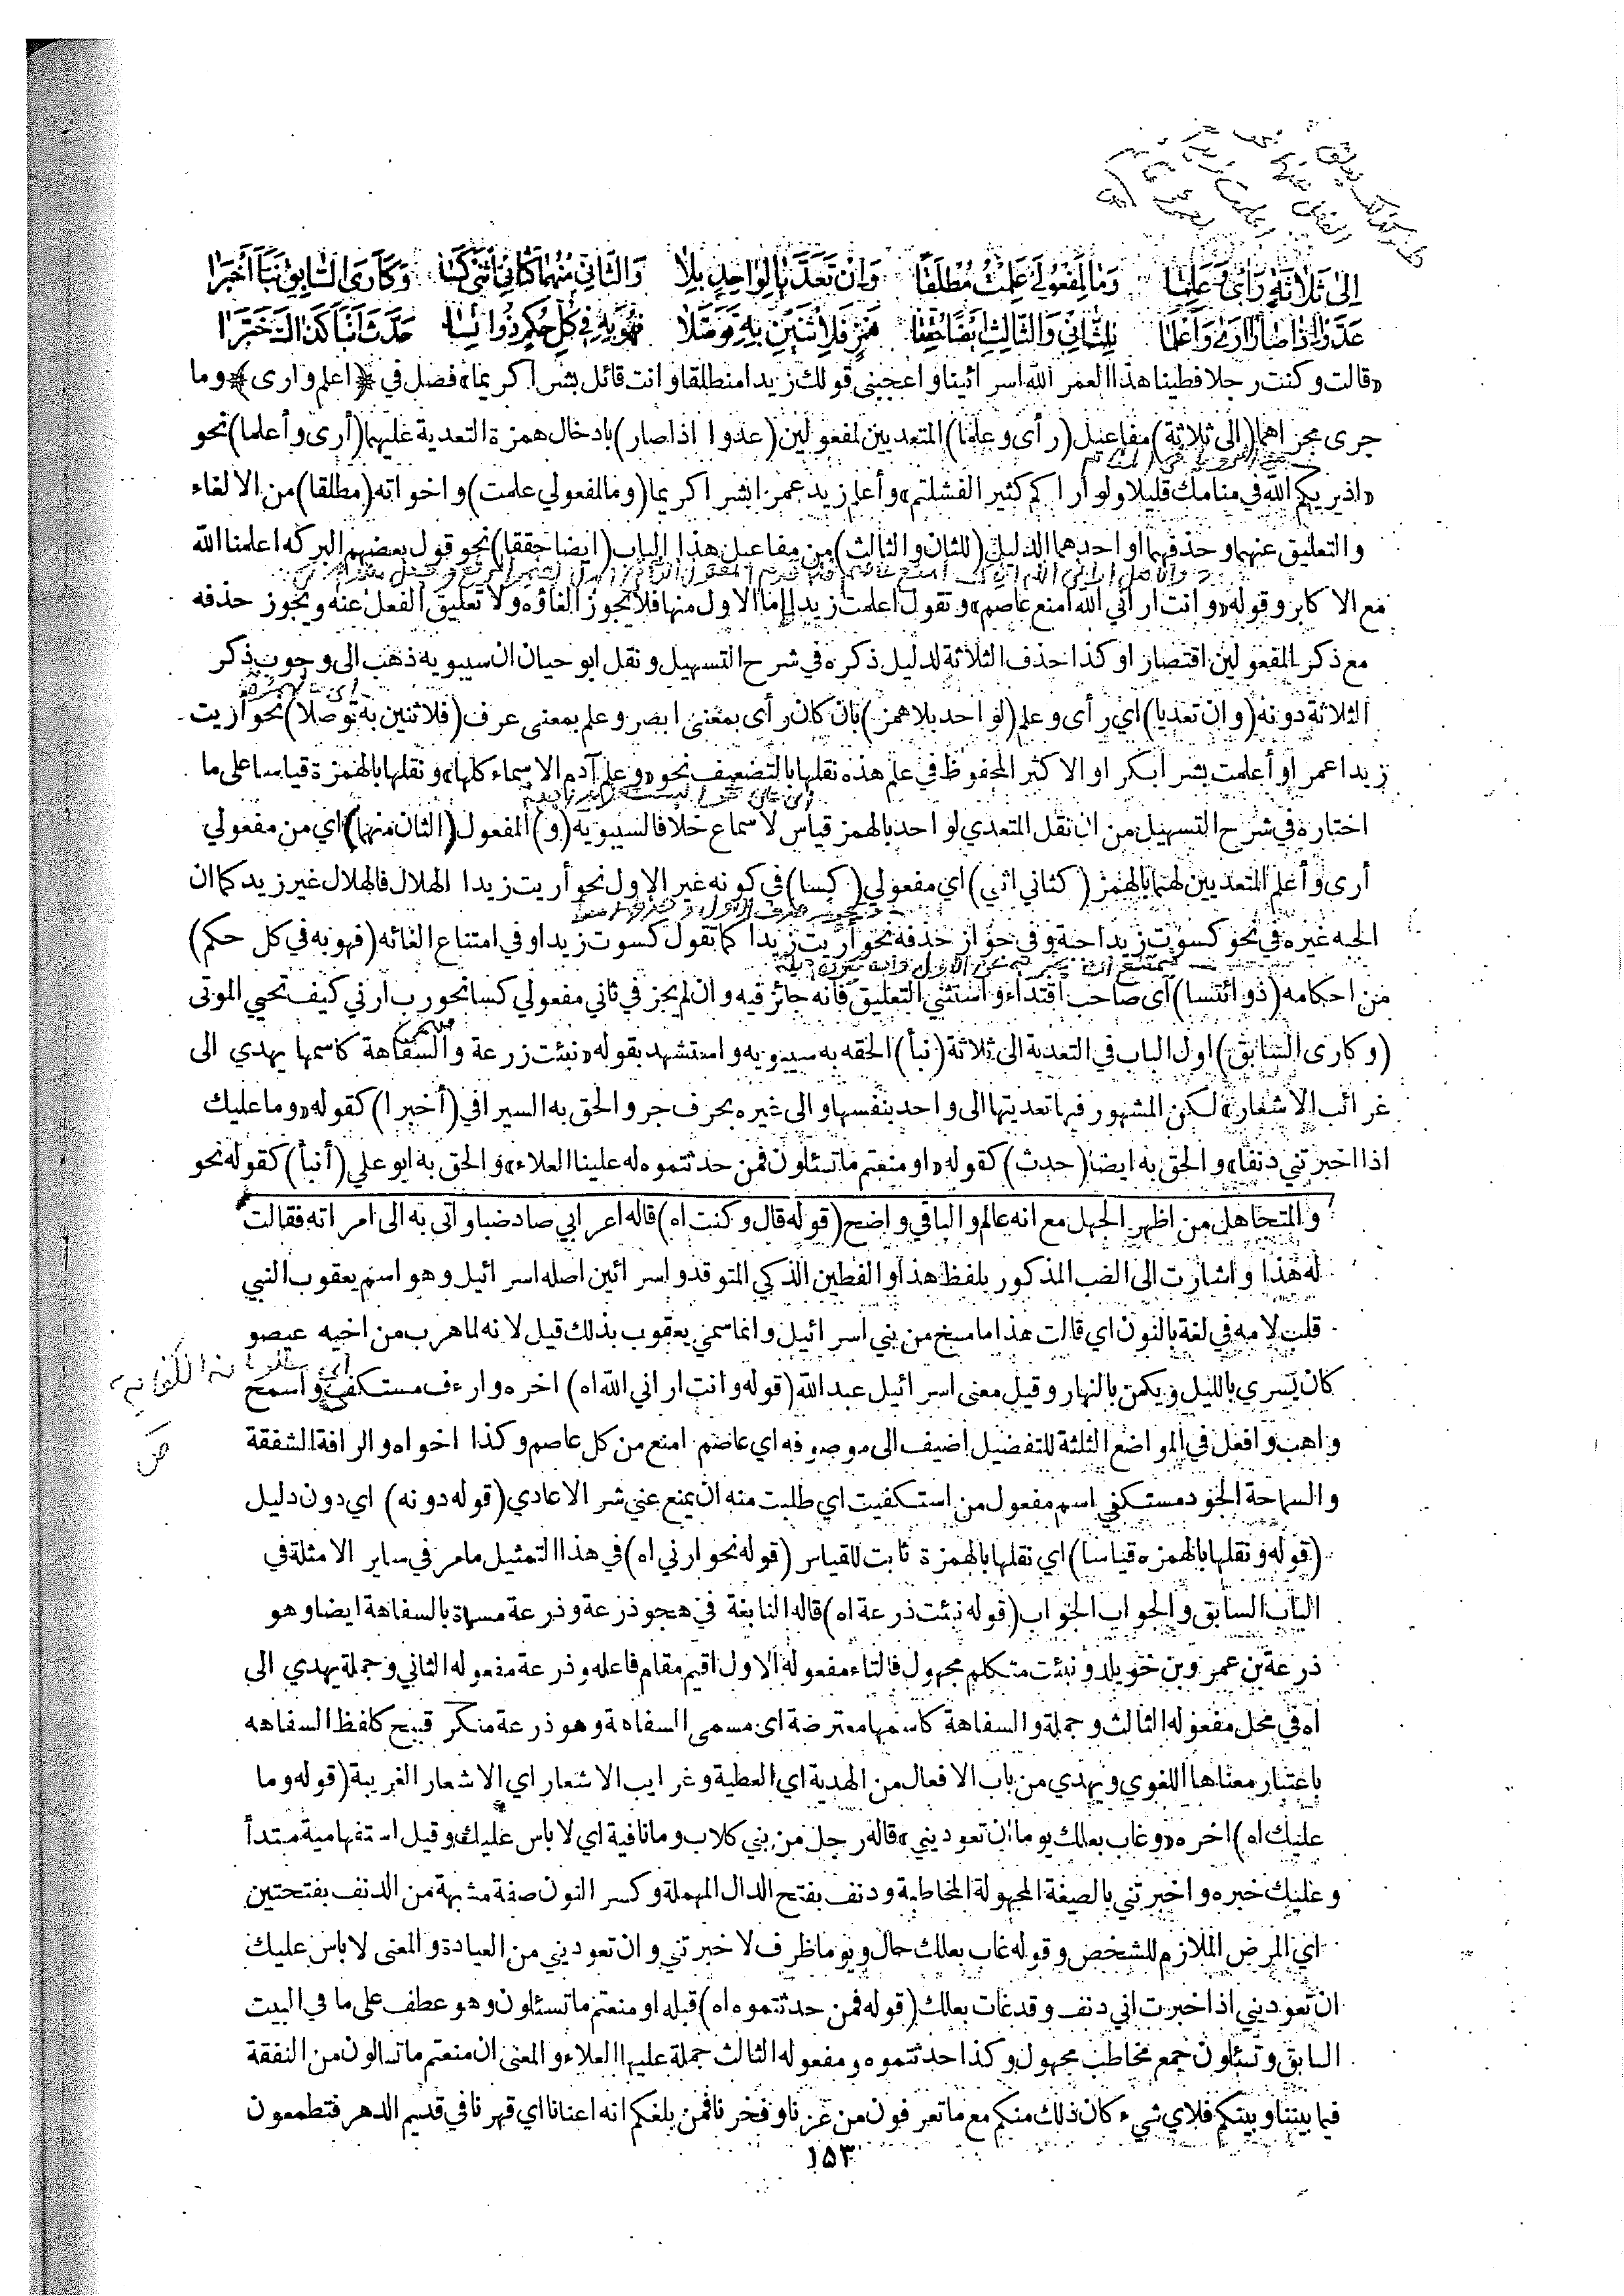 اِلىٰ ثَلاثَةٍ رَأىٰ وَعَلِمٰا وَمٰا لِمَفْعُولَىْ عَلِمْتُ مُطْلَقًا وَاِنْ تَعَدَّيٰا لِوٰاحِدٍ بِلاٰ وَالثّٰانِ مِنْهُمٰا كَثٰانِى اثْنَىْ كَسٰا وَكَاَرَى السّٰابِقِ نَبَّأَ اَخْبَرٰا
عَدَّوْا اِذٰا صٰارٰا اَرىٰ وَاَعْلَمٰا لِلثّٰانِ وَالثّٰالِثِ اَيْضًا حُقِّقٰا هَمْزٍ فَلاِثْنَيْنِ بِهِ تَوَصَّلاٰ فَهُوَ بِهِ فِى كُلِّ حُكْمٍ ذُو ائْتِسٰا حَدَّثَ اَنْبَأَ كَذٰاكَ خَبَّرٰا
«قالت وكنت رجلا فطينا هذا لعمر الله اسرائينا واعجبنى قولك زيدا منطلقا وانت قائل بشرا كريما» فصل في ﴿اعلم وارى﴾ وما
جرى مجراهما (الى ثلاثة) مفاعيل (رأى وعلما) المتعديين لمفعولين (عدوا اذا صار) بادخال همزة التعدية عليهما (أرى وأعلما) نحو
«اذ يريكهم الله في منامك قليلا ولو أراكهم كثيرا لفشلتم» وأعلم زيد عمرا بشرا كريما (وما لمفعولي علمت) واخواته (مطلقا) من الالغاء
والتعليق عنهما وحذفهما او احدهما لدليل (للثان والثالث) من مفاعيل هذا الباب (ايضا حققا) نحو قول بعضهم البركه اعلمنا الله
مع الاكابر وقوله «وانت اراني الله امنع عاصم» وتقول اعلمت زيدا اما الاول منها فلا يجوز الغاؤه ولا تعليق الفعل عنه ويجوز حذفه
مع ذكر المفعولين اقتصارا وكذا حذف الثلاثة لدليل ذكره في شرح التسهيل ونقل ابو حيان ان سيبويه ذهب الى وجوب ذكر
الثلاثة دونه (وان تعديا) اي رأى وعلم (لواحد بلا همز) بان كان رأى بمعنى ابصر وعلم بمعنى عرف (فلاثنين به توصلا) نحو أريت
زيدا عمرا وأعلمت بشرا بكرا والاكثر المحفوظ في علم هذه نقلها بالتضعيف نحو «وعلم آدم الاسماء كلها» ونقلها بالهمزة قياسا على ما
اختاره في شرح التسهيل من ان نقل المتعدي لواحد بالهمز قياس لا سماع خلافا لسيبويه (و) المفعول (الثان منهما) اي من مفعولي
أرى وأعلم المتعديين لهما بالهمز (كثاني اثني) اي مفعولي (كسا) في كونه غير الاول نحو أريت زيدا الهلال فالهلال غير زيد كما ان
الجبه غيره في نحو كسوت زيدا جبة وفي جواز حذفه نحو أريت زيدا كما تقول كسوت زيدا وفي امتناع الغائه (فهو به في كل حكم)
من احكامه (ذو ائتسا) اى صاحب اقتداء واستثنى التعليق فانه جائز فيه وان لم يجز في ثاني مفعولي كسا نحو رب أرني كيف تحيي الموتى
(وكارى السابق) اول الباب في التعدية الى ثلاثة (نبأ) الحقه به سيبويه واستشهد بقوله «نبئت زرعة والسفاهة كاسمها يهدي الى
غرائب الاشعار» لكن المشهور فيها تعديتها الى واحد بنفسها والى غيره بحرف جر والحق به السيرافي (أخبرا) كقوله «وما عليك
اذا اخبرتني دنفا» والحق به ايضا (حدث) كقوله «او منعتم ما تسئلون فمن حدثتموه له علينا العلاء» والحق به ابو علي (أنبأ) كقوله نحو
والمتجاهل من اظهر الجهل مع انه عالم والباقي واضح (قوله قال وكنت اه) قاله اعرابي صاد ضبا واتى به الى امراته فقالت
له هذا واشارت الى الضب المذكور بلفظ هذا والفطين الذكي المتوقد واسرائين اصله اسرائيل وهو اسم يعقوب النبي
قلبت لامه في لغة بالنون اي قالت هذا ما مسخ من بني اسرائيل وانما سمي يعقوب بذلك قيل لانه لما هرب من اخيه عيصو
كان يسري بالليل ويكمن بالنهار وقيل معنى اسرائيل عبد الله (قوله وانت اراني الله اه) اخره وارءف مستكفى واسمح
واهب وافعل في المواضع الثلثة للتفضيل اضيف الى موصوفه اي عاصم امنع من كل عاصم وكذا اخواه والرافة الشفقة
والسماحة الجود مستكفي اسم مفعول من استكفيت اي طلبت منه ان يمنع عني شر الاعادي (قوله دونه) اي دون دليل
(قوله ونقلها بالهمزه قياسا) اي نقلها بالهمزة ثابت للقياس (قوله نحو ارني اه) في هذا التمثيل ما مر في ساير الامثلة في
الباب السابق والجواب الجواب (قوله نبئت ذرعة اه) قاله النابغة في هجو ذرعة وذرعة مسماة بالسفاهة ايضا وهو
ذرعة بن عمرو بن خويلد ونبئت متكلم مجهول فالتاء مفعوله الاول اقيم مقام فاعله وذرعة مفعوله الثاني وجملة يهدي الى
اه في محل مفعوله الثالث وجملة والسفاهة كاسمها معترضة اى مسمى السفاهة وهو ذرعة منكر قبيح كلفظ السفاهه
باعتبار معناها اللغوي ويهدي من باب الافعال من الهدية اي العطية وغرايب الاشعار اي الاشعار الغريبة (قوله وما
عليك اه) اخره «وغاب بعلك يوما ان تعوديني» قاله رجل من بني كلاب وما نافية اي لا باس عليك وقيل استفهامية مبتدأ
وعليك خبره واخبرتني بالصيغة المجهولة المخاطبة ودنف بفتح الدال المهملة وكسر النون صفة مشبهة من الدنف بفتحتين
اي المرض الملازم للشخص وقوله غاب بعلك حال ويوما ظرف لاخبرتني وان تعوديني من العيادة والمعنى لا باس عليك
ان تعوديني اذا اخبرت اني دنف وقد غاب بعلك (قوله فمن حدثتموه اه) قبله او منعتم ما تسئلون وهو عطف على ما في البيت
السابق وتسئلون جمع مخاطب مجهول وكذا حدثتموه ومفعوله الثالث جملة عليها العلاء والمعنى ان منعتم ما تسالون من النفقة
فيما بيننا وبينكم فلاي شيء كان ذلك منكم مع ما تعرفون من عزنا وفخرنا فمن بلغكم انه اعتانا اي قهرنا في قديم الدهر فتطمعون
١٥٣